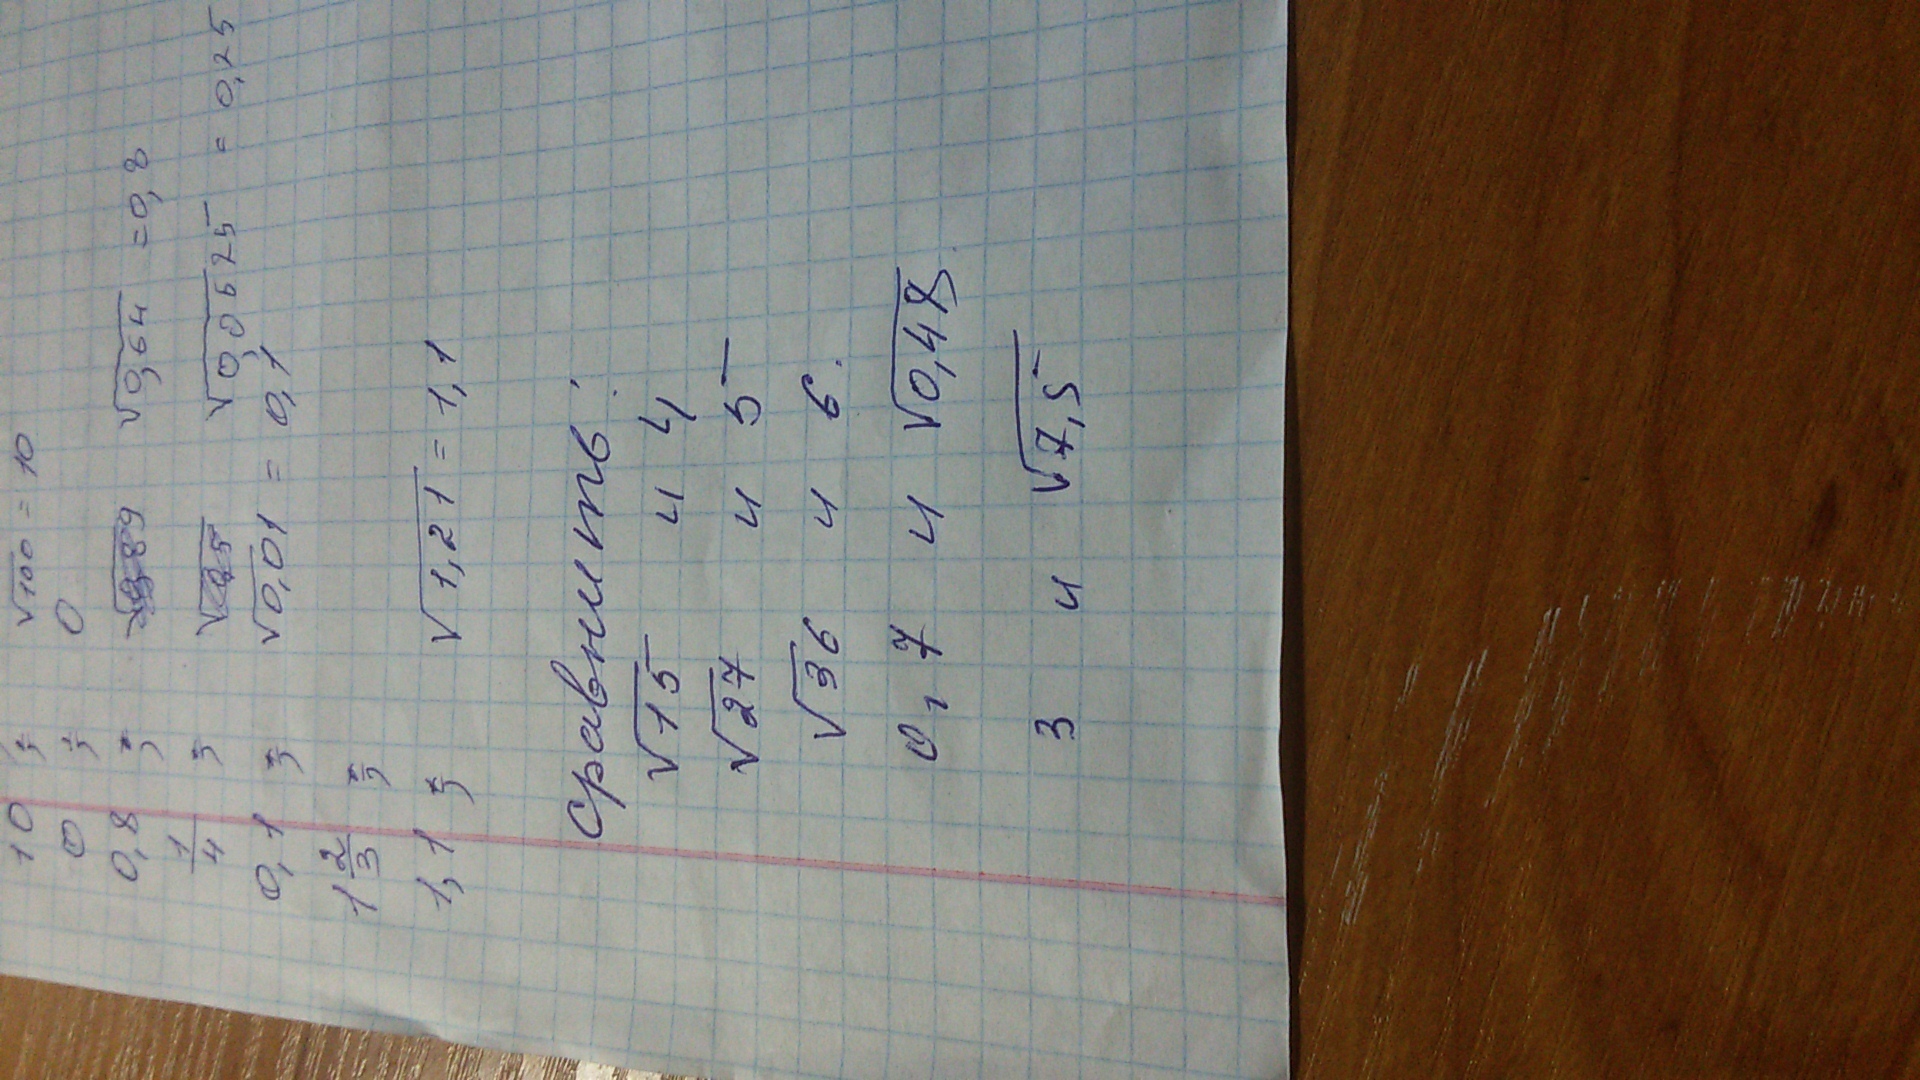 10; √100 = 10
0; 0
0,8; √0,64 = 0,8
1/4; √0,0625 = 0,25
0,1; √0,01 = 0,1
1 2/3;
1,1; √1,21 = 1,1
Сравнить:
√15 и 4
√27 и 5
√36 и 6.
0,7 и √0,48
3 и √7,5